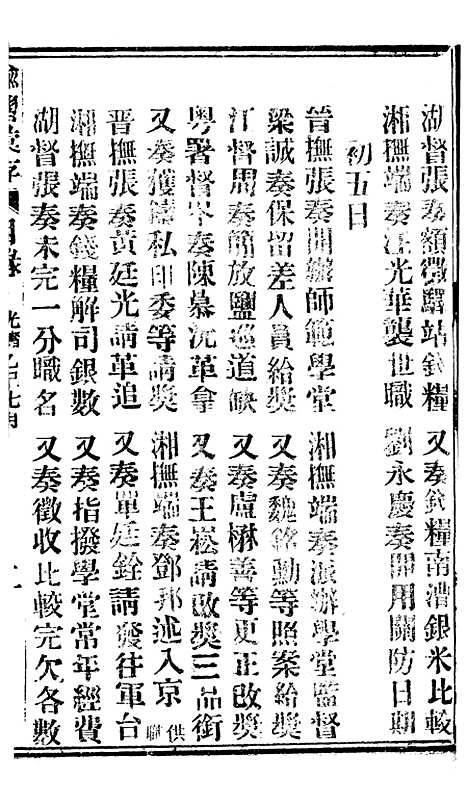 湖督張奏額徵驛站錢糧　又奏錢糧南漕銀米比較
湘撫端奏汪光華襲世職　劉永慶奏開用關防日期
初五日
晉撫張奏開辦師範學堂　湘撫端奏派辦學堂監督
梁誠奏保留差人員給獎　又奏魏銘勳等照案給獎
江督周奏簡放鹽巡道缺　又奏盧楙善等更正改獎
粵署督岑奏陳慕沅革拿　又奏王崧請改獎三品銜
又奏獲鑄私印委等請獎　湘撫端奏鄧邦述入京供職
晉撫張奏黃廷光請革追　又奏單廷銓請發往軍台
湘撫端奏錢糧解司銀數　又奏指撥學堂常年經費
湖督張奏未完一分職名　又奏徵收比較完欠各數
諭摺彙存　目錄　光緒乙巳七月